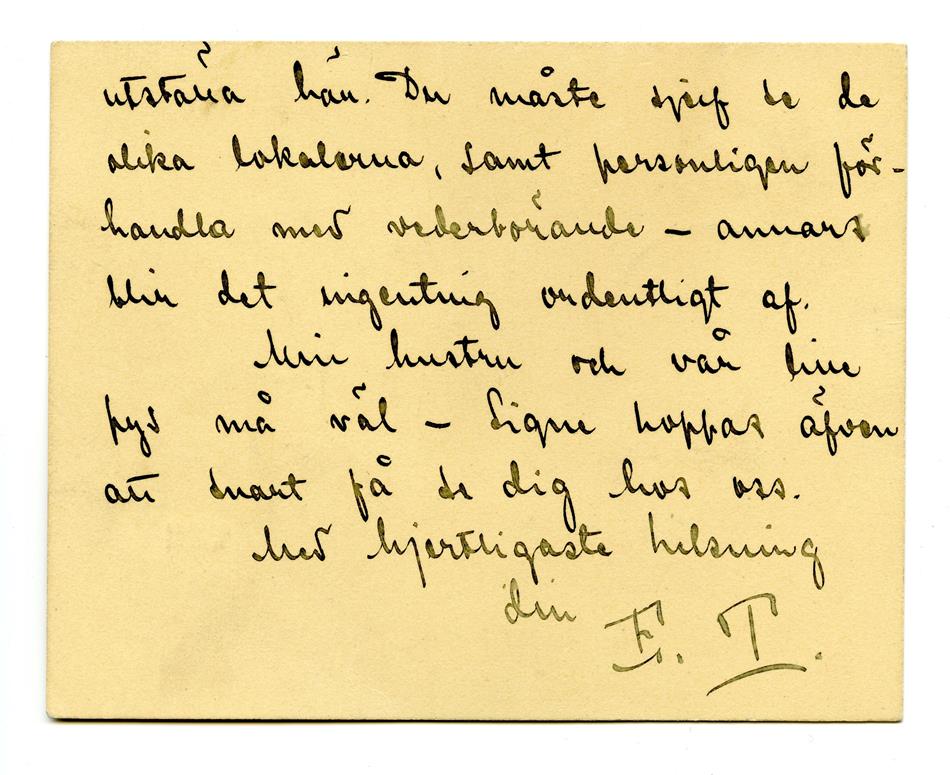 utställa här. Du måste sjelf se de
olika lokalerna, samt personligen för-
handla med vederbörande – annars
blir det ingenting ordentligt af.
Min hustru och vår lille
pys må väl – Signe hoppas äfven
att snart få se dig hos oss.
Med hjertligaste helsning
din E. T.